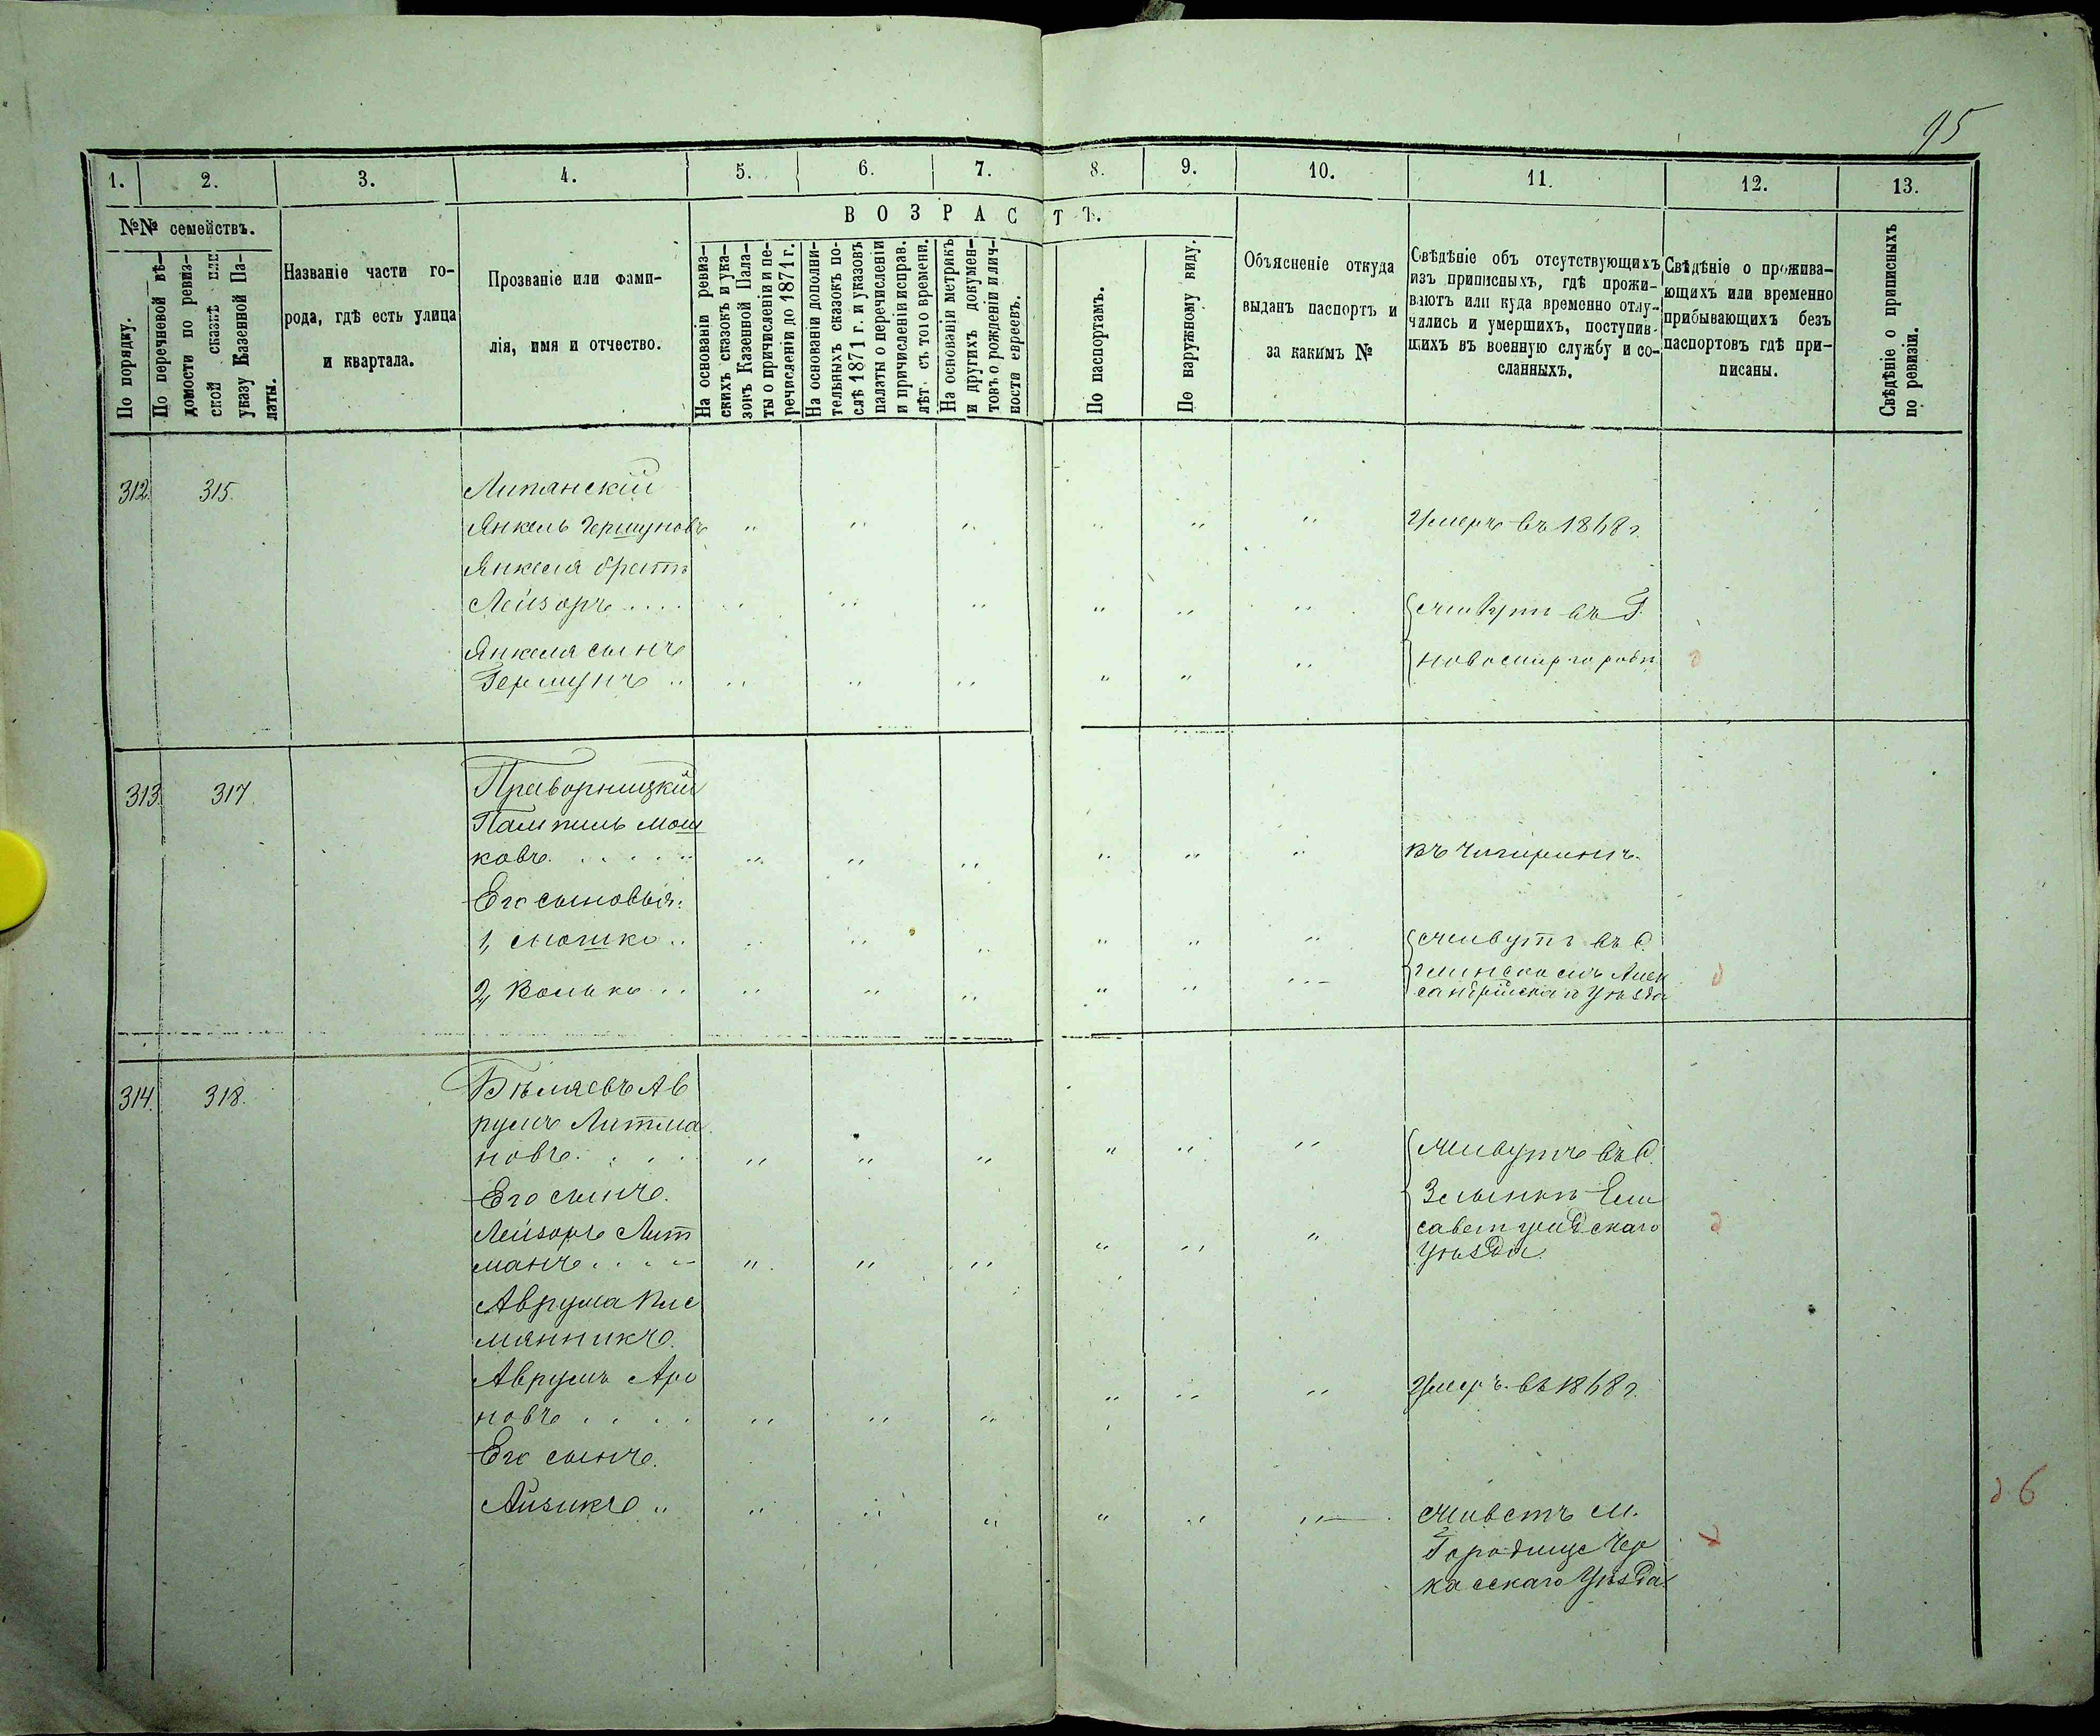 95
1. 2. 3. 4. 5. 6. 7. 8. 9. 10. 11. 12. 13.
№№ семействъ.
По порядку.
По перечневой вѣ-
домости по ревиз-
ской сказкѣ или
указу Казенной Па-
латы.
Названіе части го-
рода, гдѣ есть улица
и квартала.
Прозваніе или фами-
лія, имя и отчество.
ВОЗРАСТЪ.
На основаніи ревиз-
скихъ сказокъ и ука-
зокъ Казенной Пала-
ты о причисленіи и пе-
речисленіи до 1871 г.
На основаніи дополни-
тельныхъ сказокъ по-
слѣ 1871 г. и указовъ
палаты о перечисленіи
и причисленіи исправ.
лѣт. съ того времени.
На основаніи метрикъ
и другихъ докумен-
товъ о рожденіи и лич-
ности евреевъ.
По паспортамъ.
По наружному виду.
Объясненіе откуда
выданъ паспортъ и
за какимъ №
Свѣдѣніе объ отсутствующихъ
изъ приписныхъ, гдѣ прожи-
ваютъ или куда временно отлу-
чились и умершихъ, поступив-
шихъ въ военную службу и со-
сланныхъ.
Свѣдѣніе о прожива-
ющихъ или временно
прибывающихъ безъ
паспортовъ гдѣ при-
писаны.
Свѣдѣніе о приписныхъ
по ревизіи.
312. 315. Липанскій
Янкель Гершуновъ " " " " " " Умеръ въ 1868 г.
Янкеля братъ
Лейзоръ .... " " " " " " Живутъ въ Г.
Янкеля сынъ
Новомиргородѣ
Гершунъ .. " " " " " "
313. 317. Праворницкій
Пампиль Мош
ковъ. . . . . " " " " " " Въ Чигиринѣ.
Его сыновья:
1, Мошко .. " " " " " " Живутъ въ С.
Глинскомъ Алек
2, Волько .. " " " " " " сандрійскаго Уѣзда
314. 318. Бѣляевъ Ав
румъ Литма
новъ. . . . " " " " " " Живутъ въ С.
Его сынъ. Злынкѣ Ели
Лейзоръ Лит саветградскаго
манъ. . . . " " " " " " Уѣзда.
Аврума Пле
мянникъ.
Аврумъ Аро
новъ . . . . " " " " " " Умеръ въ 1868 г.
Его сынъ.
Айзикъ .. " " " " " " Живетъ М.
Городище Чер
касскаго Уѣзда.
д 6